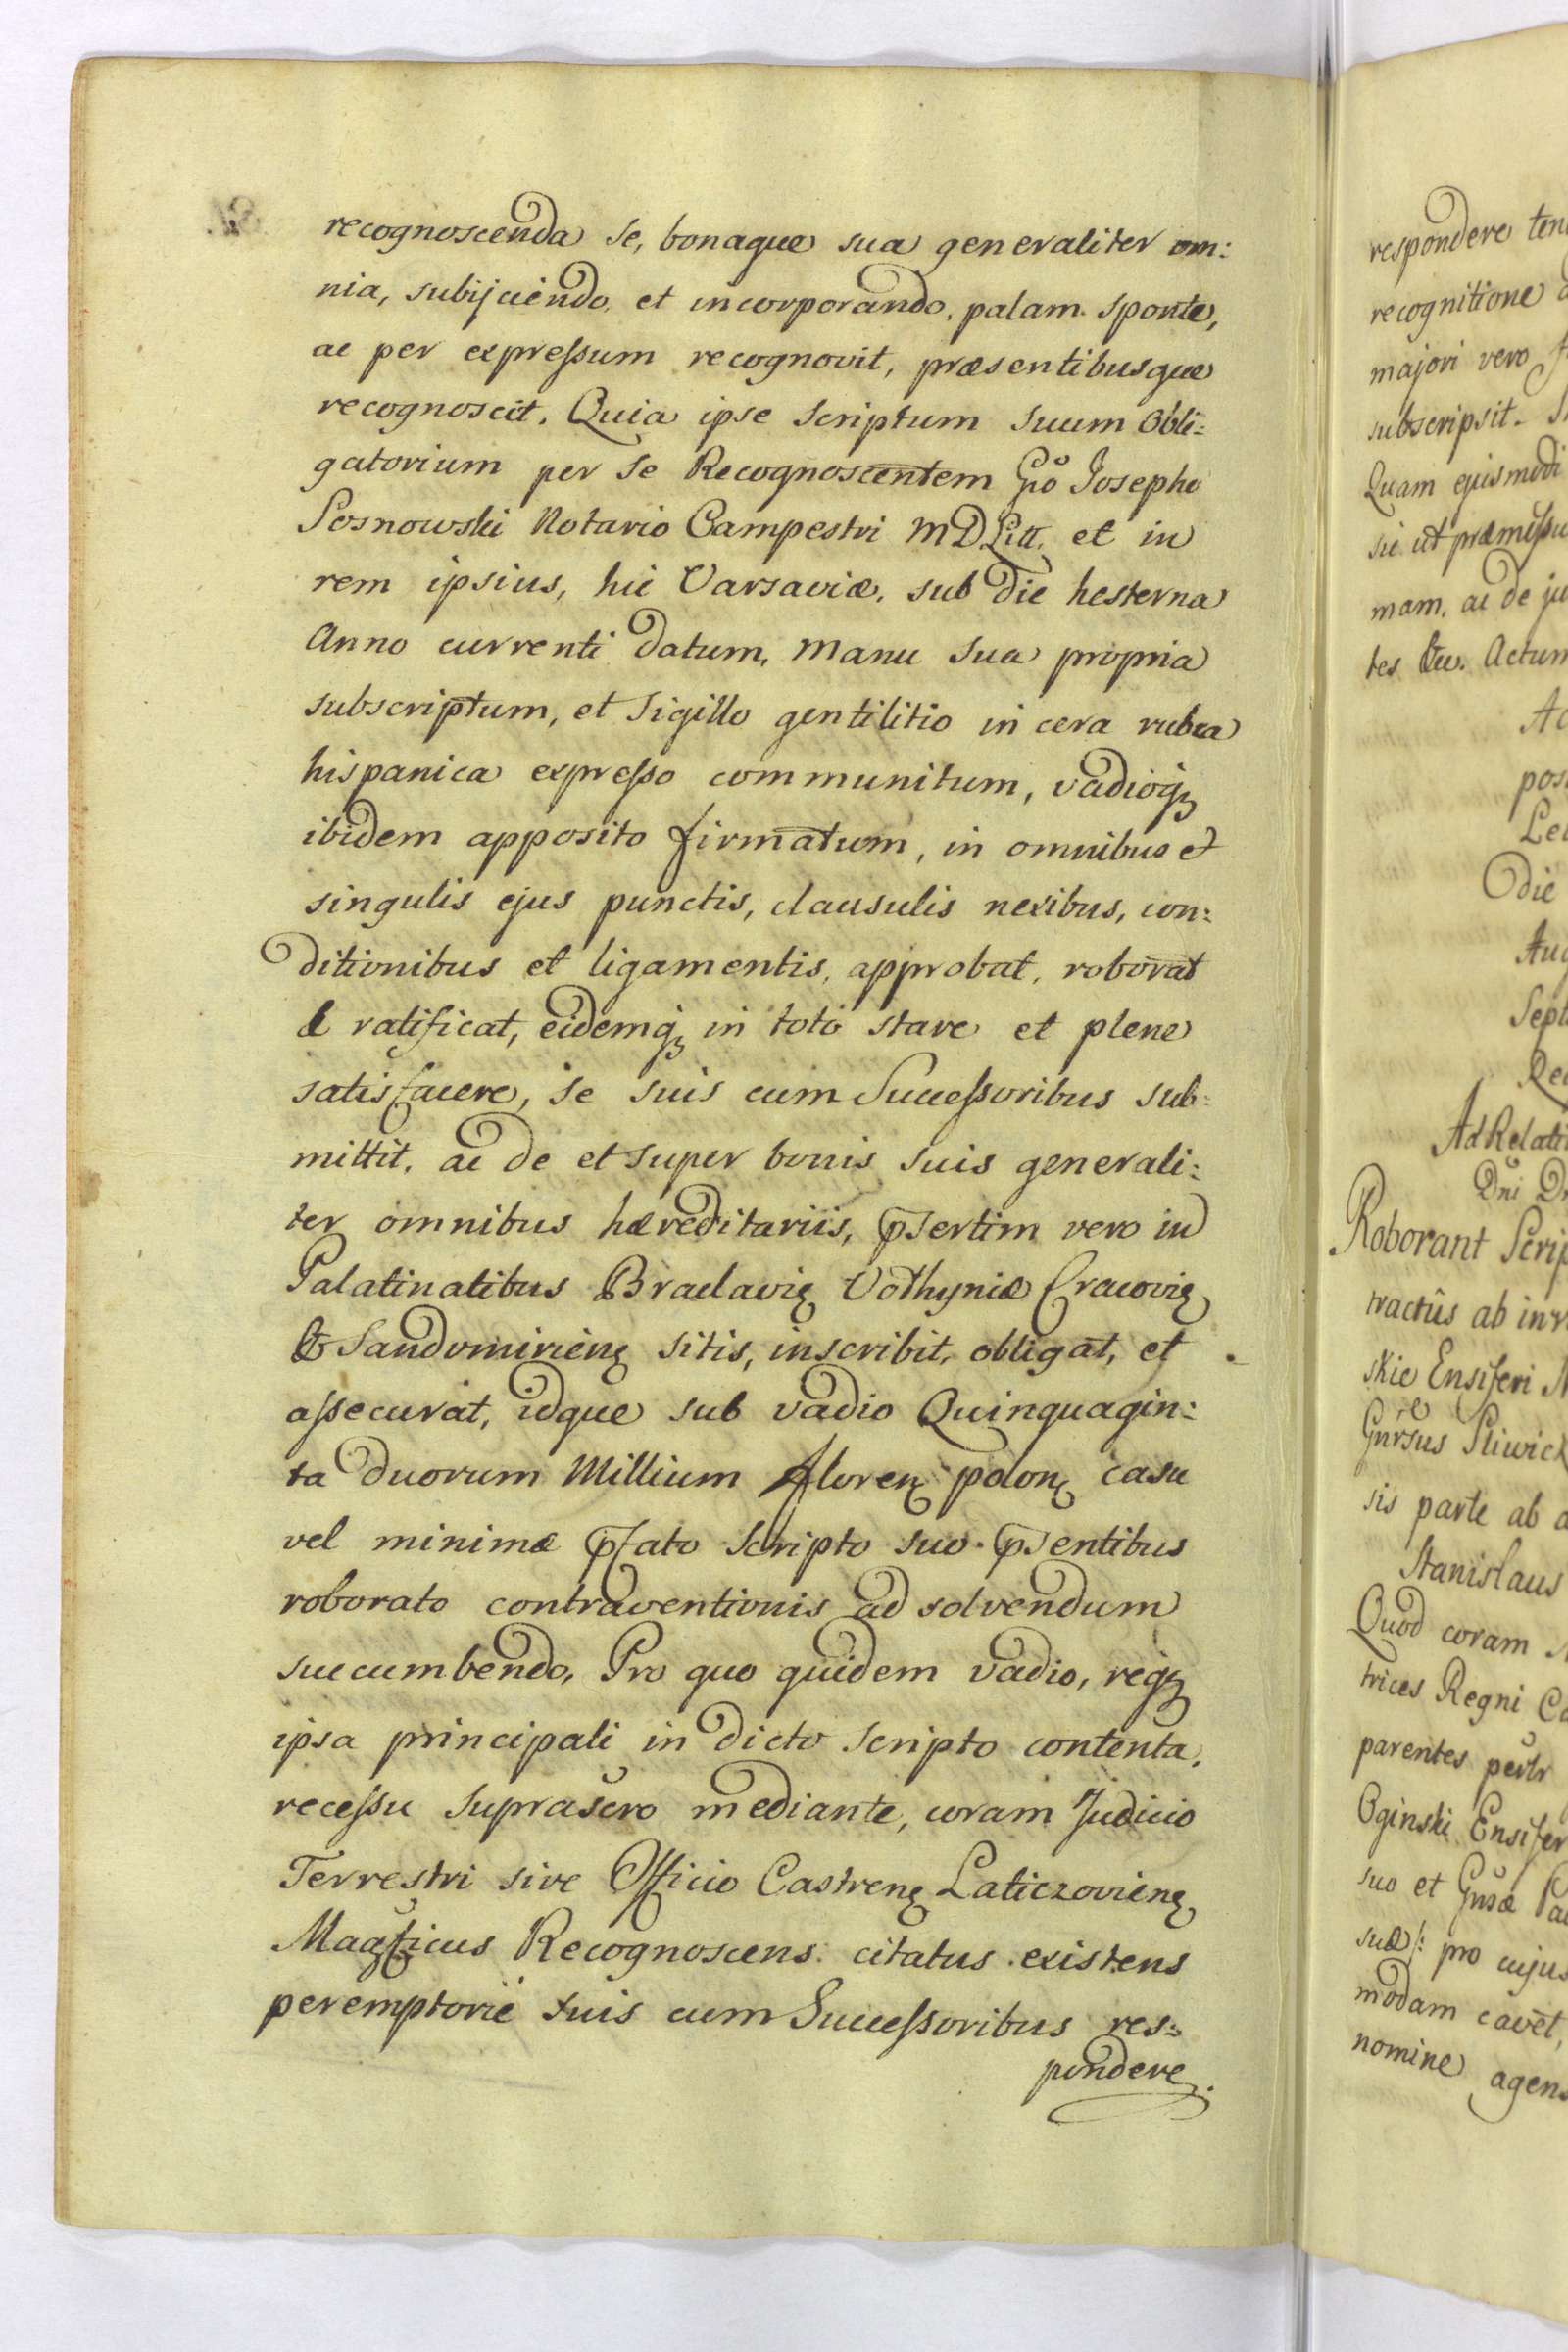 recognoscenda se, bonaque sua generaliter om:
nia, subijciendo, et incorporando, palam sponte,
ac per expreſsum recognovit, præsentibusque
recognoscit. Quia ipse Scriptum suum Obli=
gatorium per se Recognoscentem Gº Josepho
Sosnowski Notario Campestri M D Litt, et in
rem ipsius, hic Varsaviæ, sub die hesterna
Anno currenti datum, manu sua propria
subscriptum, et Sigillo gentilitio in cera rubra
hispanica expreſso communitum, vadioq̢
ibidem apposito firmatum, in omnibus et
singulis ejus punctis, clausulis nexibus, con:
ditionibus et ligamentis, approbat, roborat
& ratificat, eidemq̢ in toto stare et plene
satisfacere, se suis cum Succeſsoribus sub:
mittit, ac de et super bonis suis generali:
ter omnibus hæreditariis, p̄sertim vero in
Palatinatibus Braclavię Volhyniæ Cracovię
& Sandomirieñ sitis, inscribit, obligat, et
aſsecurat, idque sub vadio Quinquagin:
ta duorum Millium floreñ poloñ casu
vel minimæ p̄fato Scripto suo p̄sentibus
roborato contraventionis ad solvendum
succumbendo, Pro quo quidem vadio, req̢
ipsa principali in dicto scripto contenta,
receſsu suprascro mediante, coram Judicio
Terrestri sive Officio Castreñ Laticzovieñ
Magficus Recognoscens citatus existens
peremptorie suis cum Succeſsoribus res=
pondere.
respondere
recognitione
majori vero
subscripsit.
Quam ejusmodi
sic ut
mam, ac de
tes
die
Roborant
tractûs ab
skie Ensiferi
sis parte ab
Stanislaus
Quod coram
trices Regni
parentes
Oginski
suo et
suæ/: pro cujus
modam cavet,
nomine